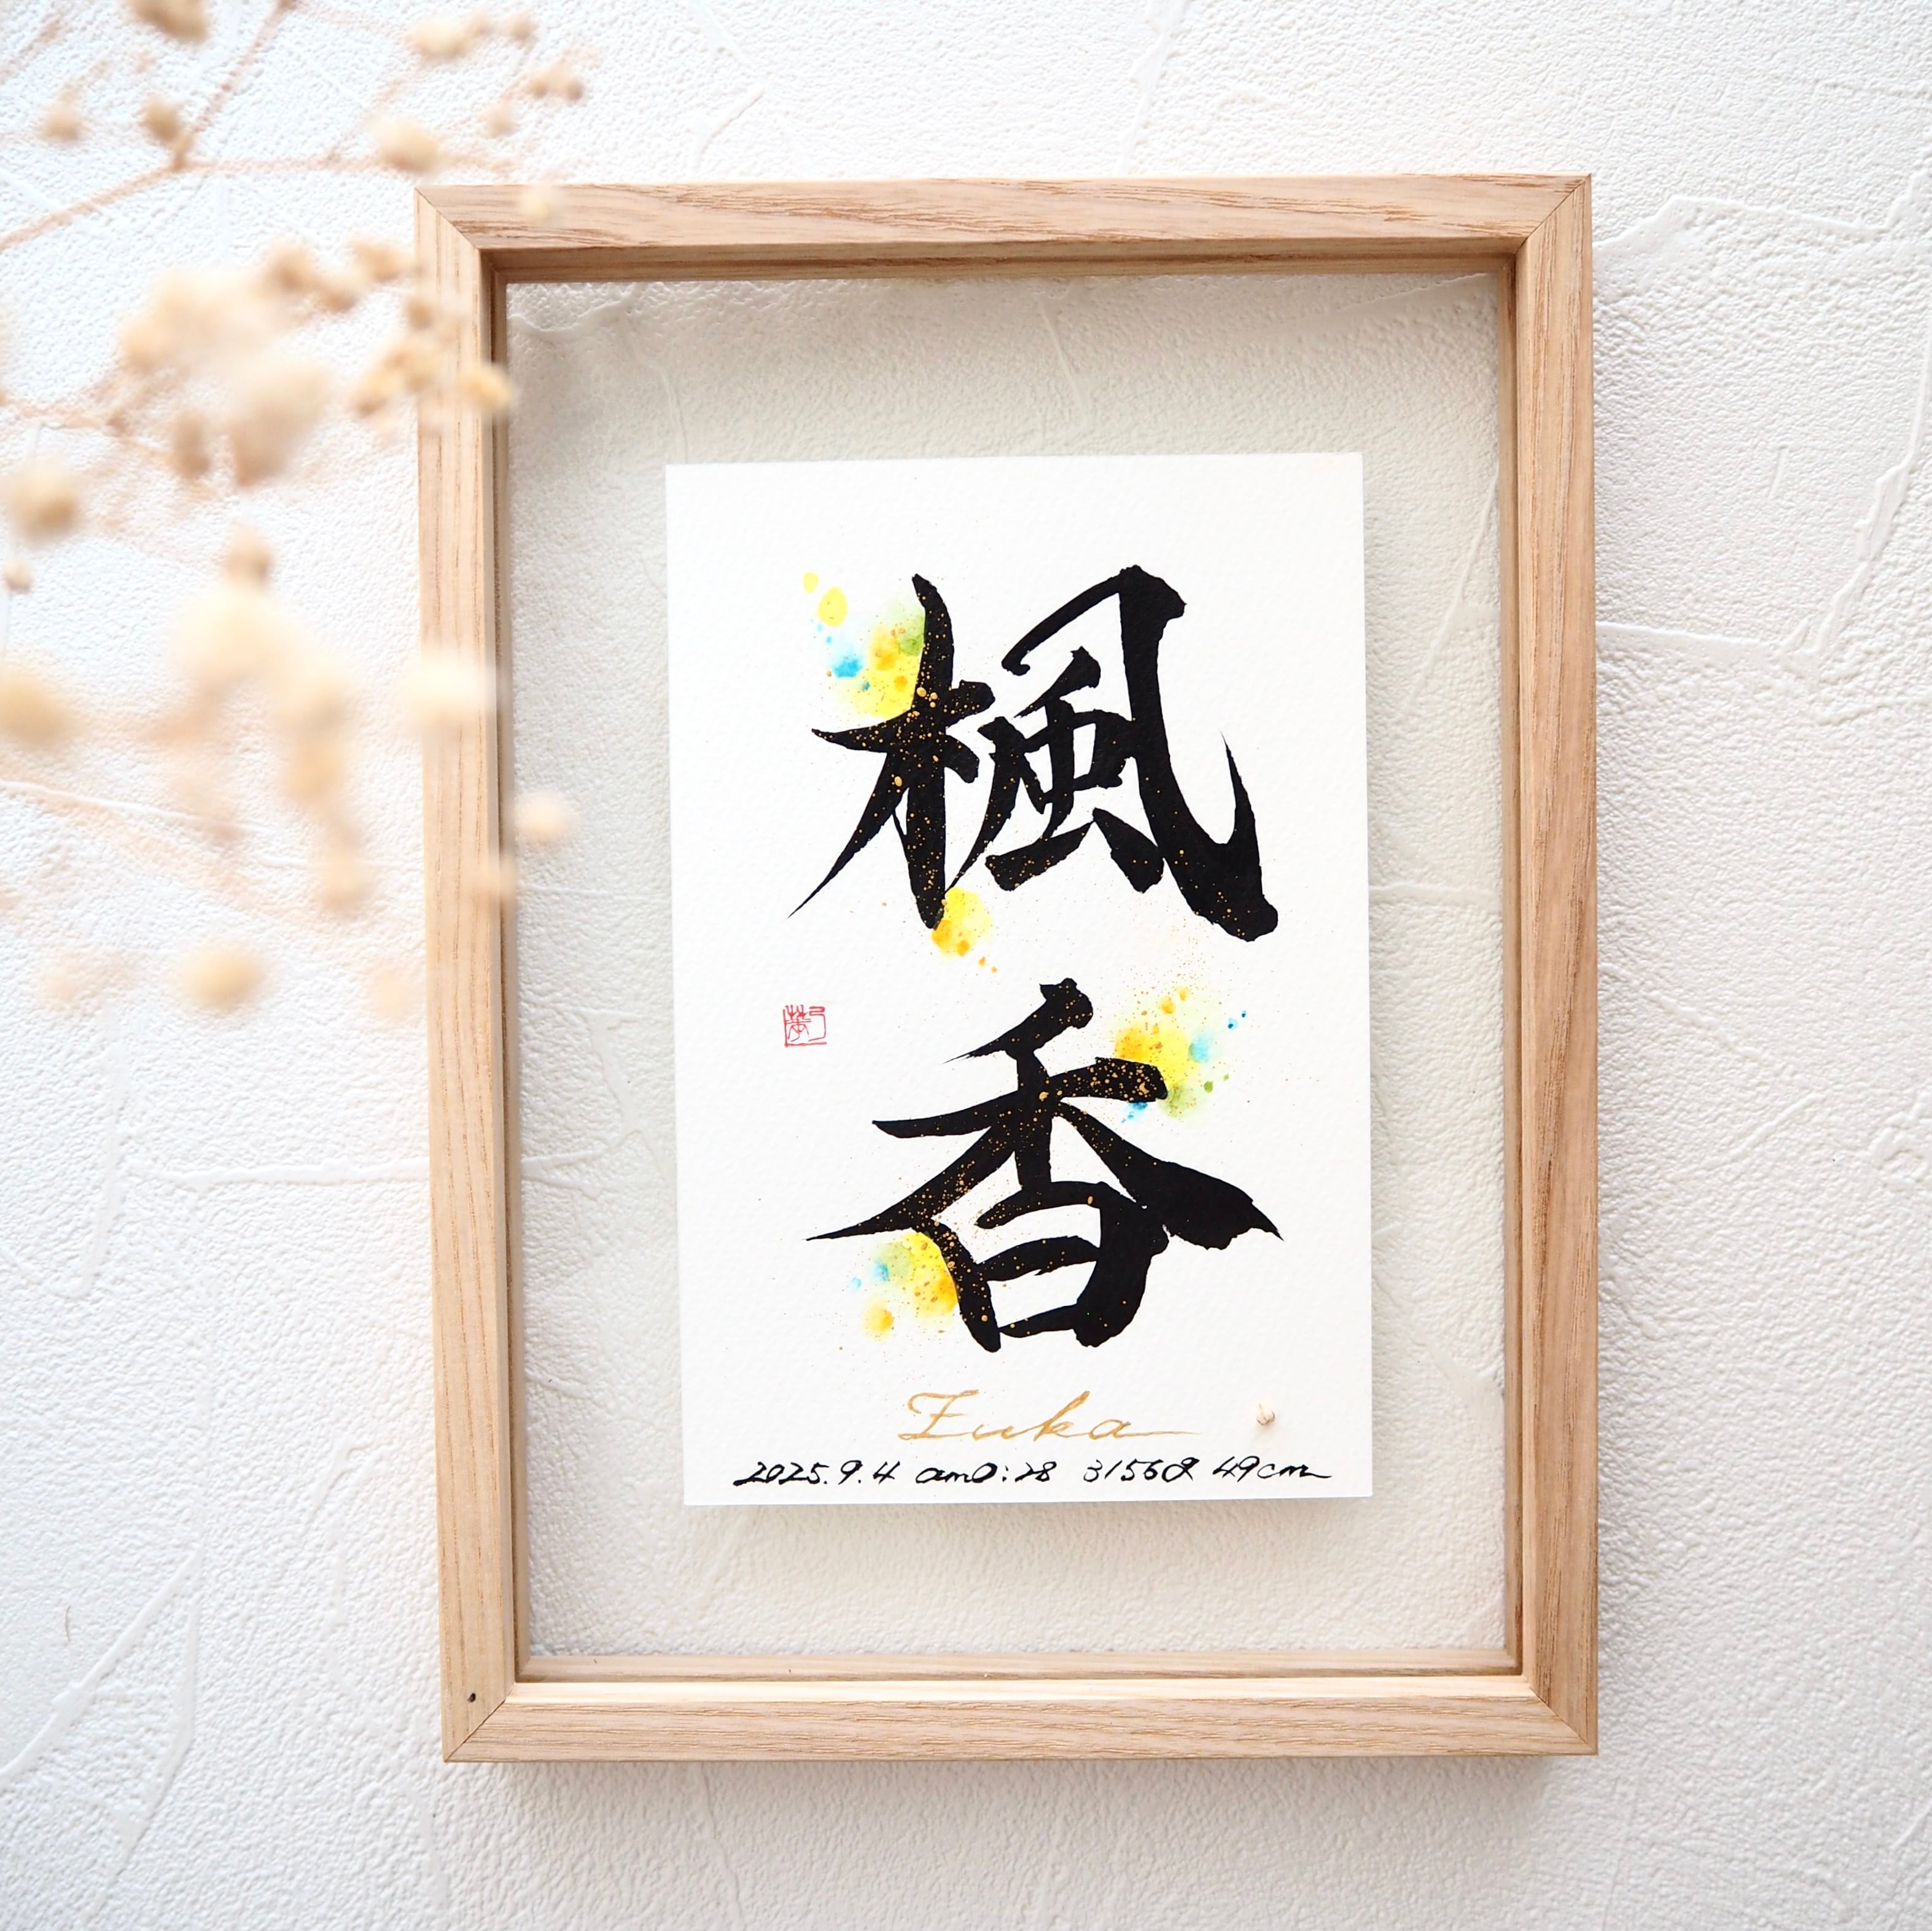 楓
香
Fuka
2025.9.4 am0:28 3156g 49cm